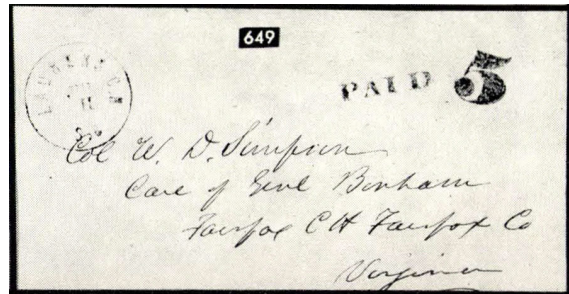 649
PAID 5
LAURENS C.H.
11
Col W. D. Simpson
Care of Genl Bonham
Fairfax C H Fairfax Co
Virginia